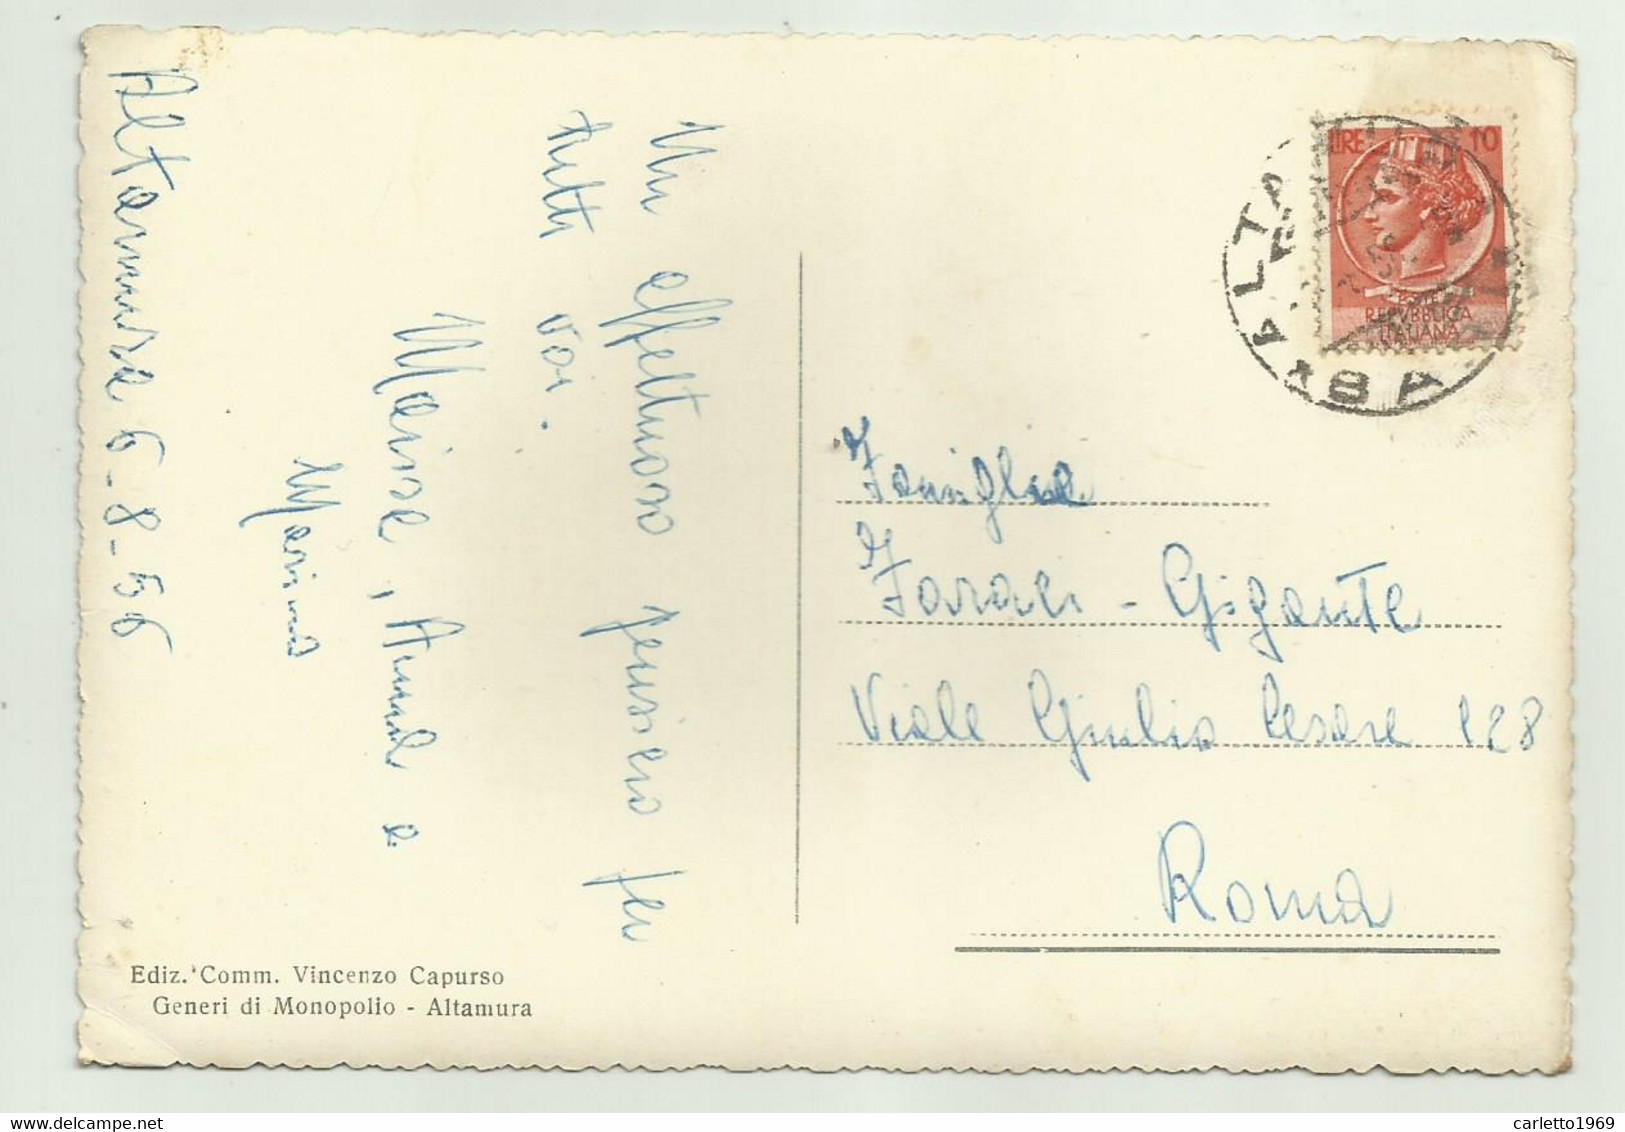 Altamura 6-8-56
Un affettuoso pensiero per
tutti voi.
e
Marina
LIRE 10
POSTE
REPVBBLICA
ITALIANA
ALTA
BA
Famiglia
Faraci - Gigante
Viale Giulio Cesare 128
Roma
Ediz. Comm. Vincenzo Capurso
Generi di Monopolio - Altamura
delcampe.net
carletto1969